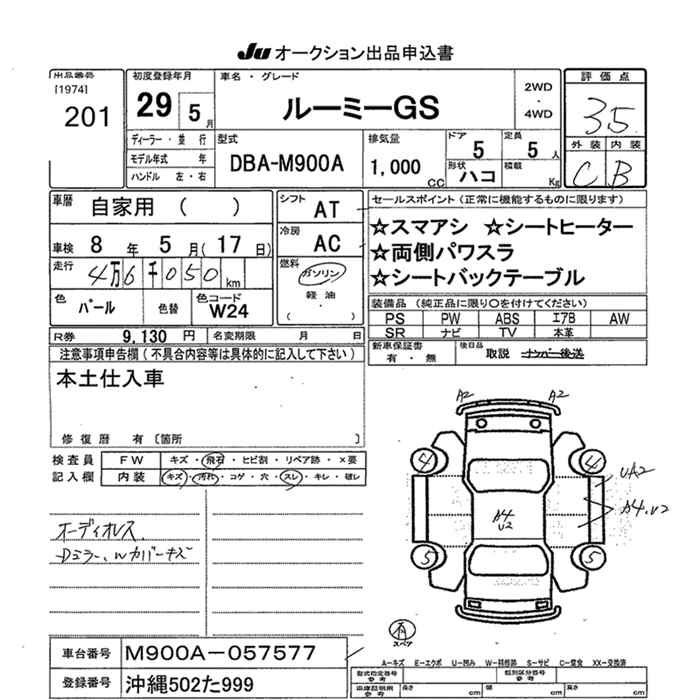 Ju オークション出品申込書
出品番号
[1974]
201
初度登録年月
29 5月
車名・グレード
ルーミーGS
2WD
・
4WD
評価点
3.5
外装 内装
C B
ディーラー・並行
モデル年式 年
ハンドル 左・右
型式
DBA-M900A
排気量
1,000 CC
ドア
5
定員
5人
形状
ハコ
積載
Kg
車歴
自家用 ( )
シフト
AT
車検 8年5月(17日)
冷房
AC
走行
4万6千050km
燃料
ガソリン
軽油
( ・ )
色
パール
色替
色コード
W24
R券 9,130円
名変期限 月 日
セールスポイント(正常に機能するものに限ります)
☆スマアシ ☆シートヒーター
☆両側パワスラ
☆シートバックテーブル
装備品(純正品に限り○を付けてください)
PS PW ABS エアB AW
SR ナビ TV 本革
新車保証書
有・無
後日品
取説 ナンバー後送
注意事項申告欄(不具合内容等は具体的に記入して下さい)
本土仕入車
修復歴 有〔箇所 〕
検査員
記入欄
FW キズ・飛石・ヒビ割・リペア跡・×要
内装 キズ・汚れ・コゲ・穴・スレ・キレ・破レ
オーディオレス
Dミラー、Wカバーキズ
A2 A2
4 4
UA2
A4 U2
A4.U2
5 5
有
スペア
A-キズ E-エクボ U-凹ミ W-補修跡 S-サビ C-腐食 XX-交換済
車台番号 M900A-057577
登録番号 沖縄502た999
型式指定番号
参考
類別区分番号
参考
車庫証明用
参考
長さ cm 幅 cm 高さ cm